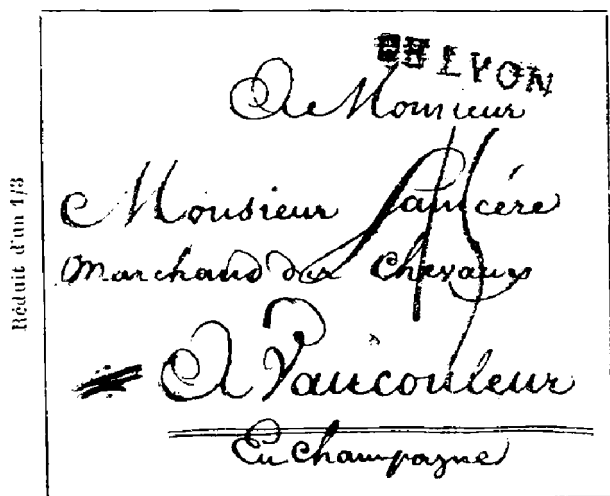 Réduit d'un 1/3
DE LYON
A Monsieur
Monsieur
Marchand de Chevaux
A Vaucouleur
En Champagne